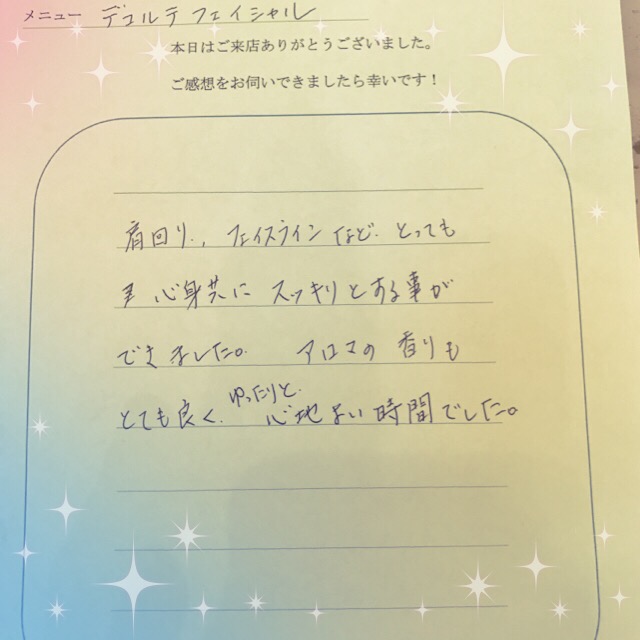 メニュー デコルテフェイシャル
本日はご来店ありがとうございました。
ご感想をお伺いできましたら幸いです！
肩回り、フェイスラインなど、とっても
心身共に スッキリとする事が
できました。 アロマの香りも
とても良く、ゆったりと、心地よい時間でした。